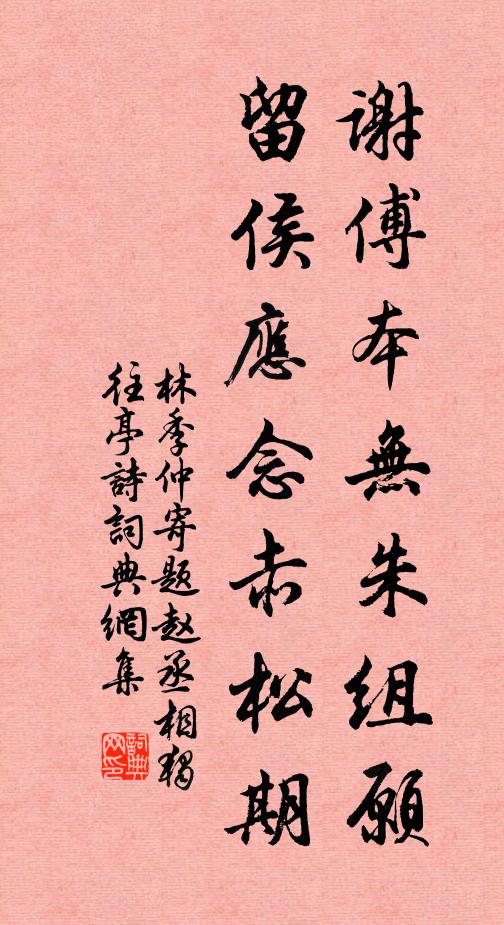 謝傅本無朱組願
留侯應念赤松期
林季仲寄題赵丞相獨
往亭詩詞典網集
詞典
网印